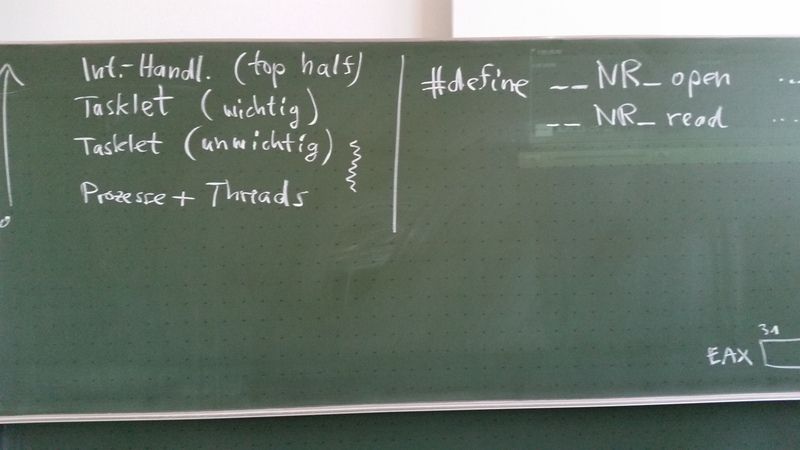 Int.-Handl. (top half)
Tasklet (wichtig)
Tasklet (unwichtig)
Prozesse + Threads
#define __NR_open ...
__NR_read ...
31
EAX